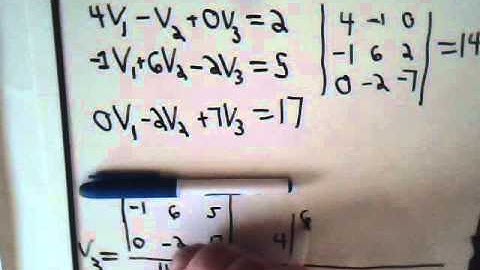 4V₁-V₂+0V₃=2
-1V₁+6V₂-2V₃=5
0V₁-2V₂+7V₃=17
|4 -1 0|
|-1 6 2|
|0 -2 -7|
=14
|-1 6 5|
V₃=
|0 -2
4|